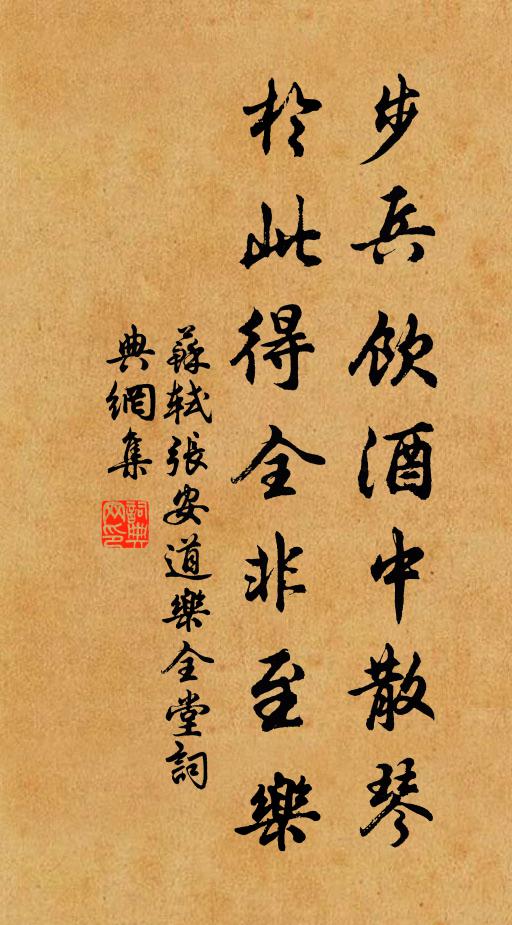 步兵飲酒中散琴
於此得全非至樂
蘇軾張安道樂全堂詞
典網集
詞典網印